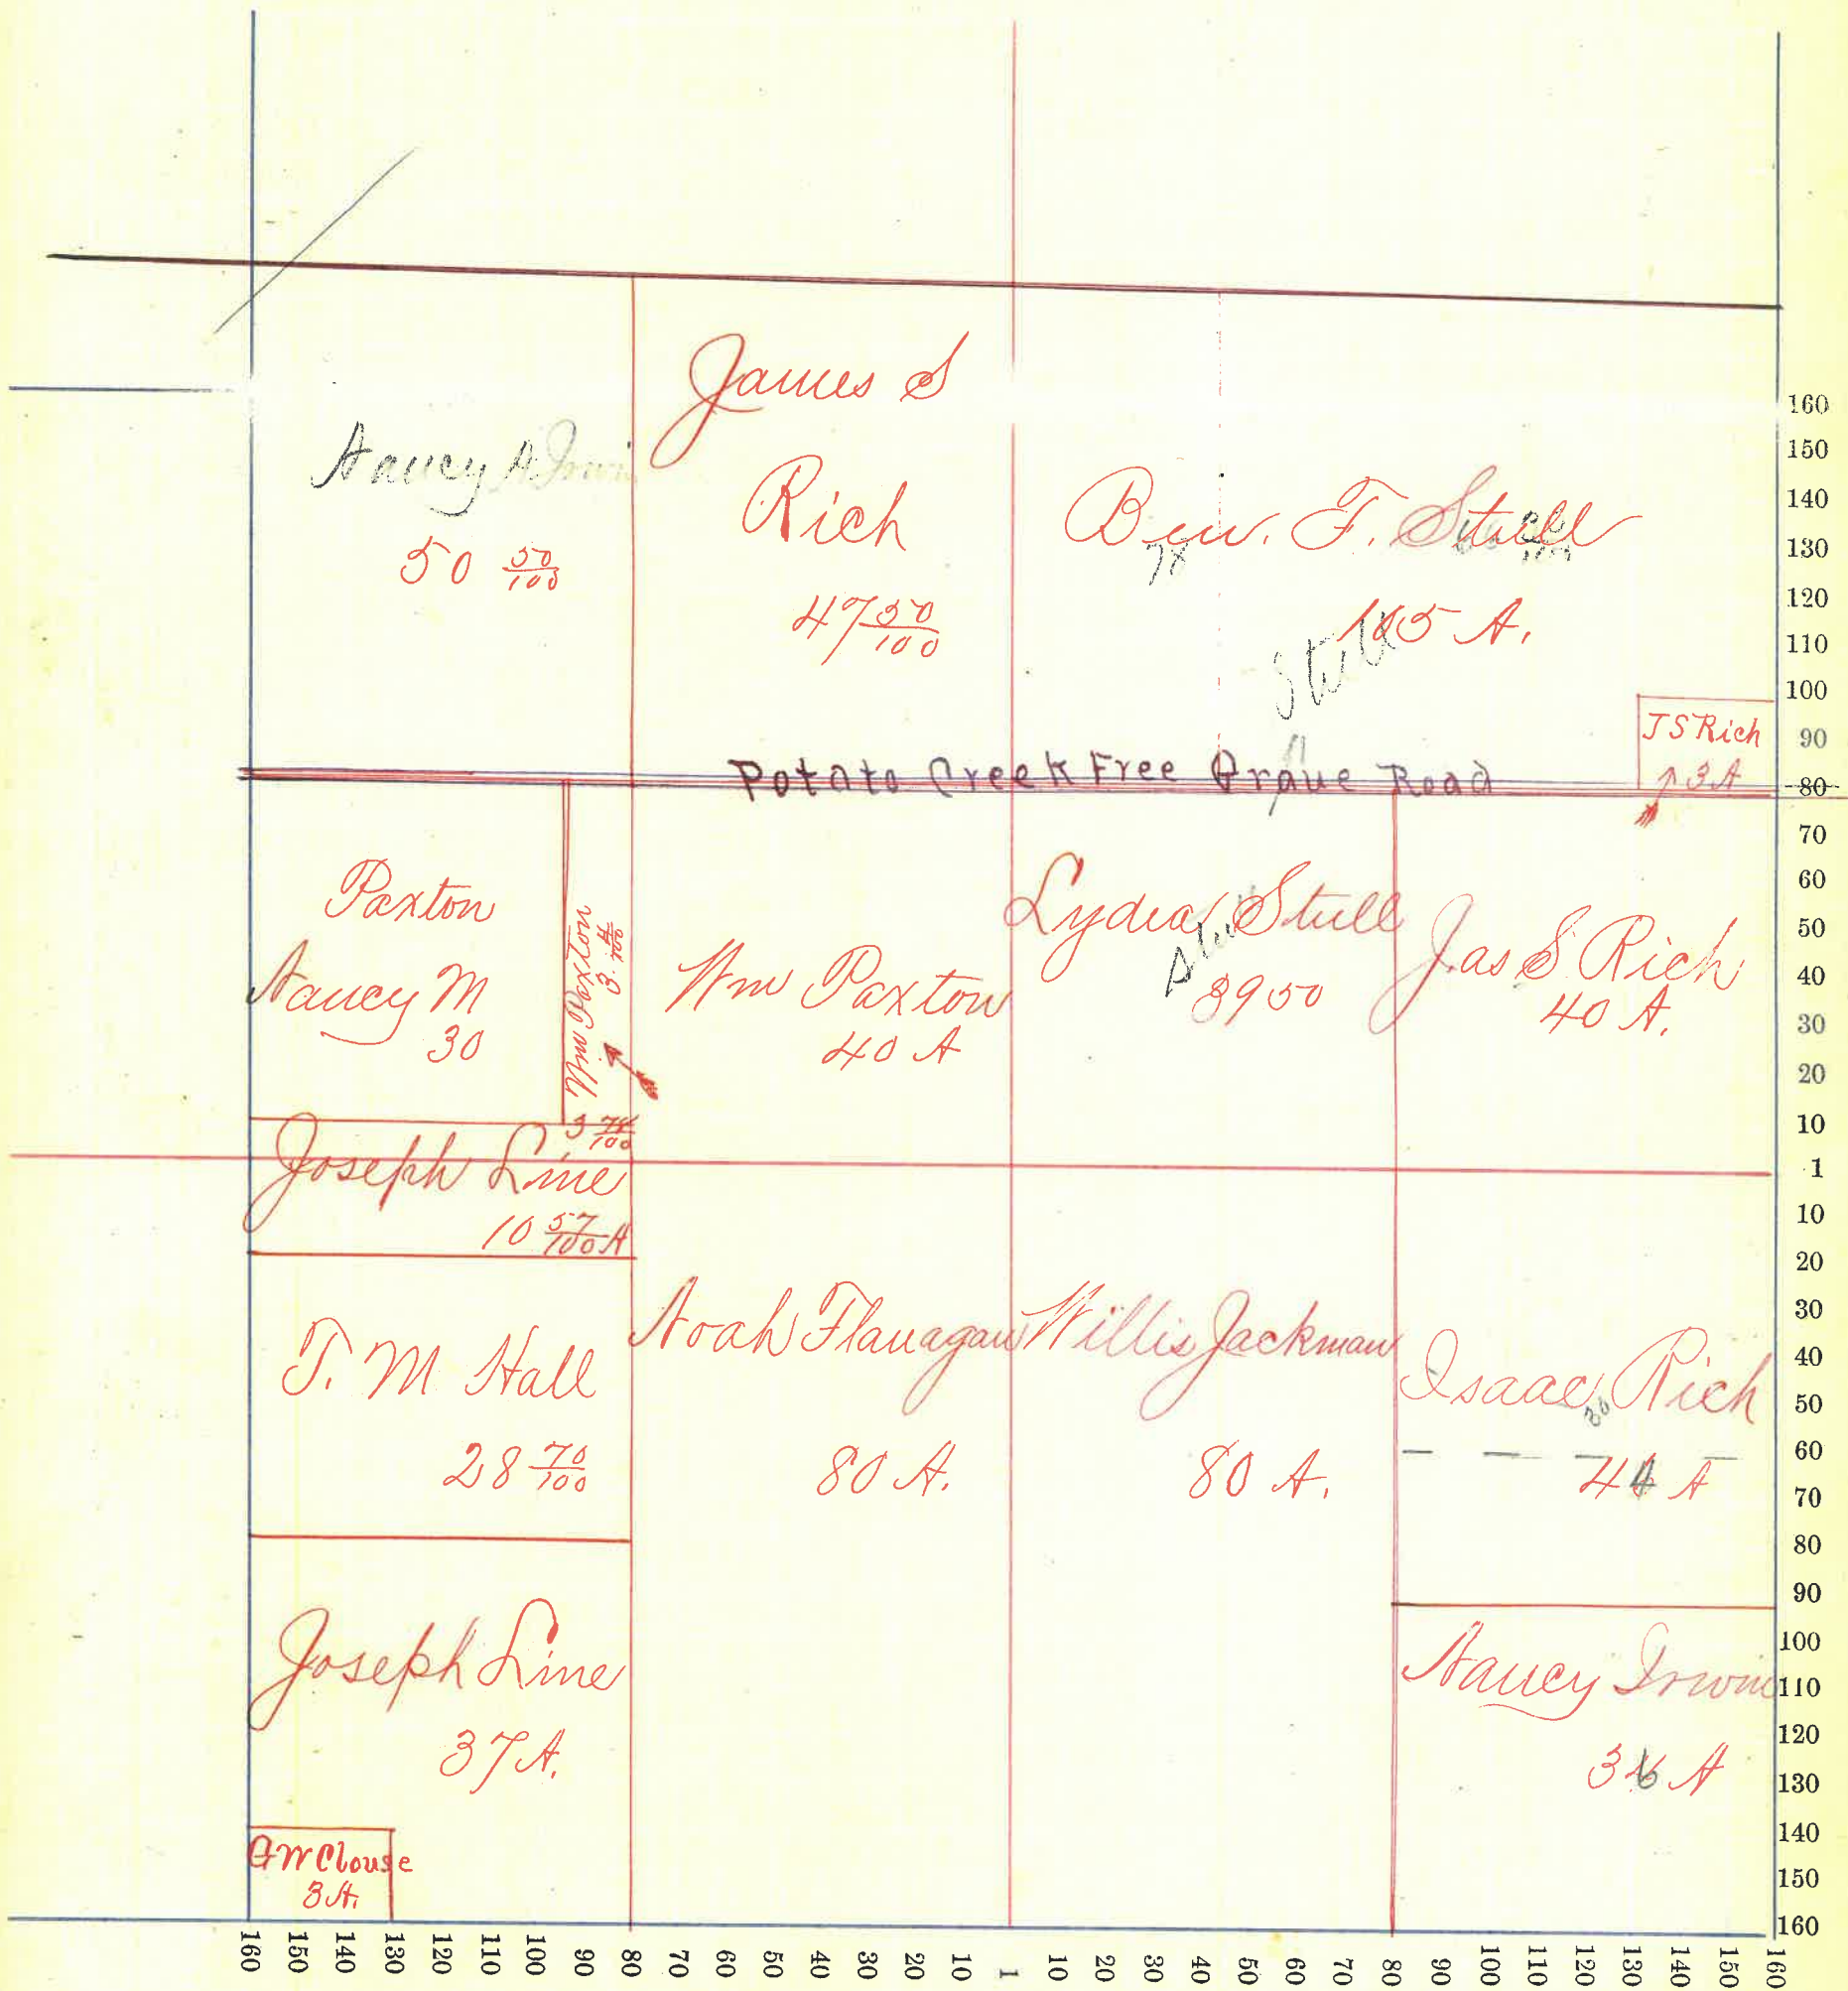 James S
Rich
47 50/100
Nancy A Irwin
50 50/100
Benj. F. Stull
78
105 A.
Stull
J S Rich
3 A
Potato Creek Free Grave Road
Paxton
Nancy M
30
Wm Paxton
3
3 74/100
Wm Paxton
40 A
Lydia Stull
39 50
Jas S Rich
40 A.
Joseph Line
10 57/100 A
T. M Hall
28 70/100
Noah Flanagan
80 A.
Willis Jackman
80 A.
Isaac Rich
30
44 A
Joseph Line
37 A.
Nancy Irwin
36 A
G W Clouse
3 A.
160
150
140
130
120
110
100
90
80
70
60
50
40
30
20
10
1
10
20
30
40
50
60
70
80
90
100
110
120
130
140
150
160
160 150 140 130 120 110 100 90 80 70 60 50 40 30 20 10 1 10 20 30 40 50 60 70 80 90 100 110 120 130 140 150 160